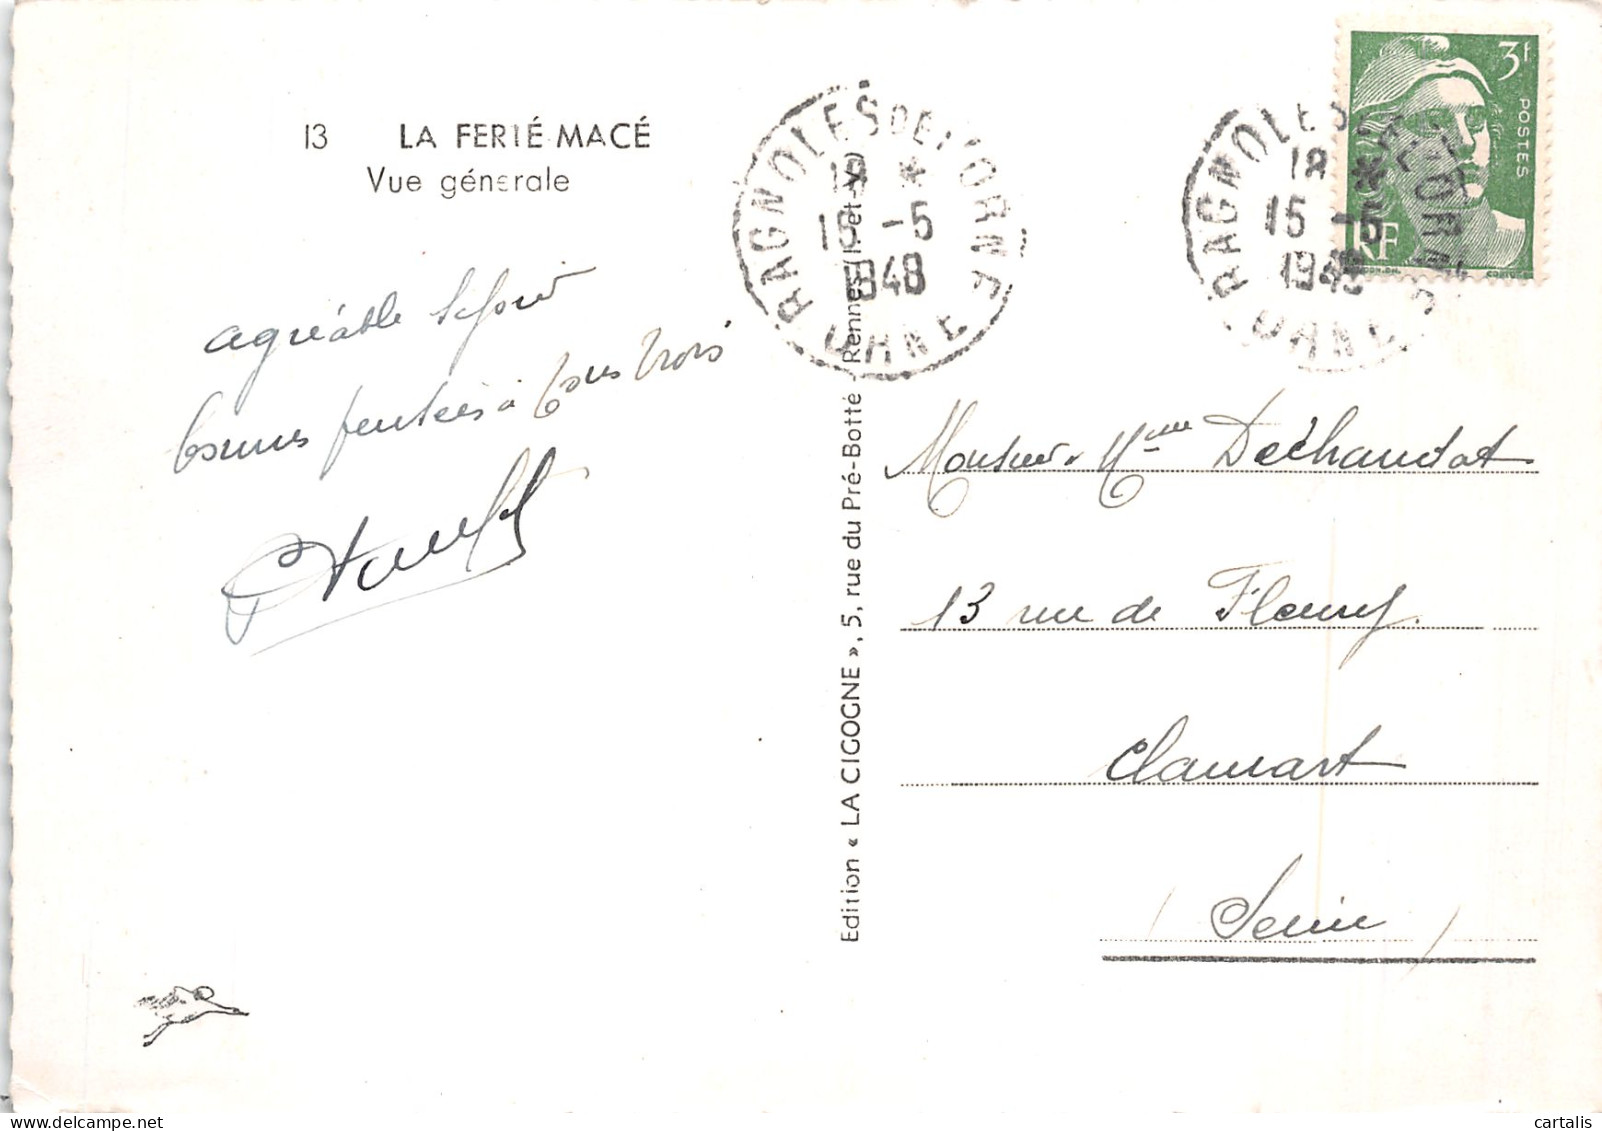 13 LA FERTÉ-MACÉ
Vue générale
agréable séjour
bonnes pensées à tous trois
BAGNOLES DE L'ORNE
18 *
15 -5
1948
ORNE
BAGNOLES DE L'ORNE
18 *
15 -5
1948
ORNE
3f
POSTES
RF
Edition « LA CIGOGNE », 5, rue du Pré-Botté - Rennes (I.-et-V.)
Monsieur & Mme Dechaudat
13 rue de Fleury.
Clamart
(Seine)
cartalis
delcampe.net